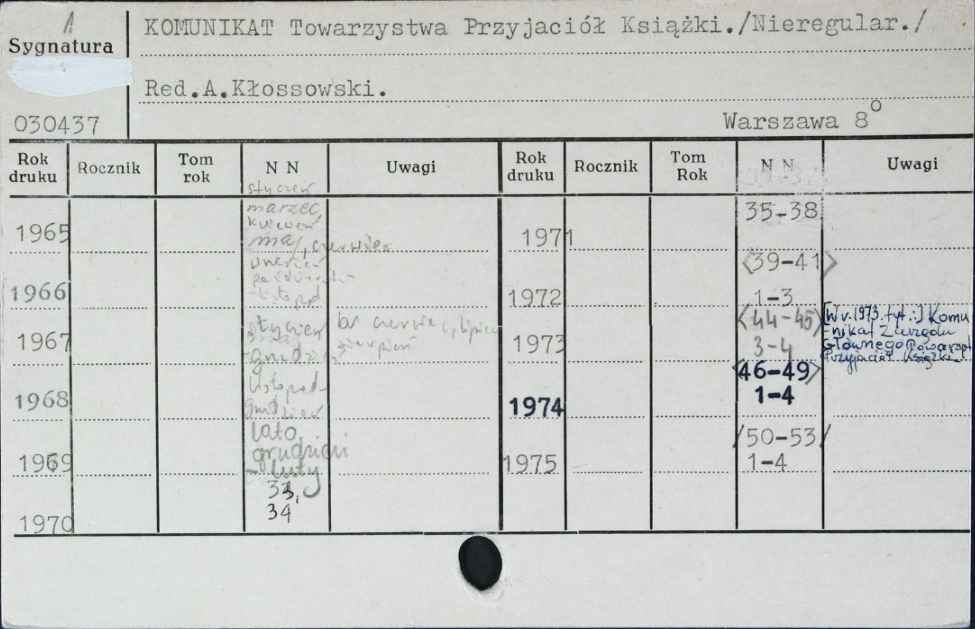 Sygnatura
030437
KOMUNIKAT Towarzystwa Przyjaciół Książki./Nieregular./
Red.A.Kłossowski.
Warszawa 8°
Rok druku Rocznik Tom rok N N Uwagi Rok druku Rocznik Tom Rok N N Uwagi
styczeń
marzec,
kwiecień
1965 maj, czerwiec
wrzesień
październik
1966 listopad
styczeń br czerwiec, lipiec
sierpień
1967 grudzień
listopad
1968 grudzień
lato,
grudzień
1969 - luty
33,
1970 34
1971 35-38
<39-41>
1972 1-3
<44-45> [W v. 1973 tyt.:] Komu
1973 3-4 nikat Zarządu
Głównego Towarzyst
Przyjaciół Książki
<46-49>
1974 1-4
/50-53/
1975 1-4